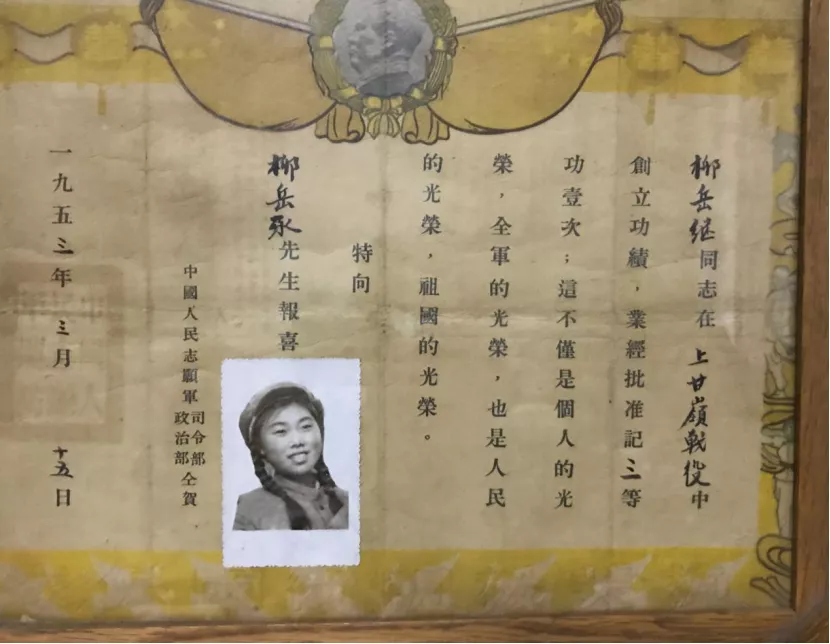 柳岳继同志在上甘嶺戰役中
創立功績，業經批准記三等
功壹次；這不僅是個人的光
榮，全軍的光榮，也是人民
的光榮，祖國的光榮。
特向
柳岳永先生報喜
中國人民志願軍司令部政治部仝賀
一九五三年三月十五日